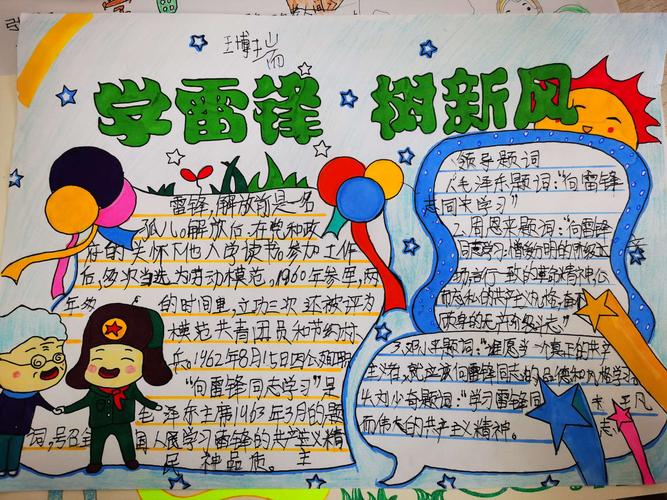 王博瑞
学雷锋 树新风
雷锋，解放前是一名
孤儿。解放后，在党和政
府的关怀下他入学读书。参加工作
后，多次当选为劳动模范。1960年参军，两
年多 的时间里，立功三次 还被评为
模范共青团员和节约标
兵。1962年8月15日因公殉职
"向雷锋同志学习"是
毛泽东主席1963年3月的题
词，号召全 国人民学习雷锋的共产主义精
神品质。
领导题词
1.毛泽东题词："向雷锋
同志学习"
2.周恩来题词："向雷锋
同志学习，憎爱分明的阶级立
场，言行一致的革命精神，公
而忘私的共产主义风格，奋不
顾身的无产阶级斗志。"
3.邓小平题词："谁愿当一个真正的共产
主义者，就应该向雷锋同志的品德和风格学习。
4.刘少奇题词："学习雷锋同
而伟大的共产主义精神。